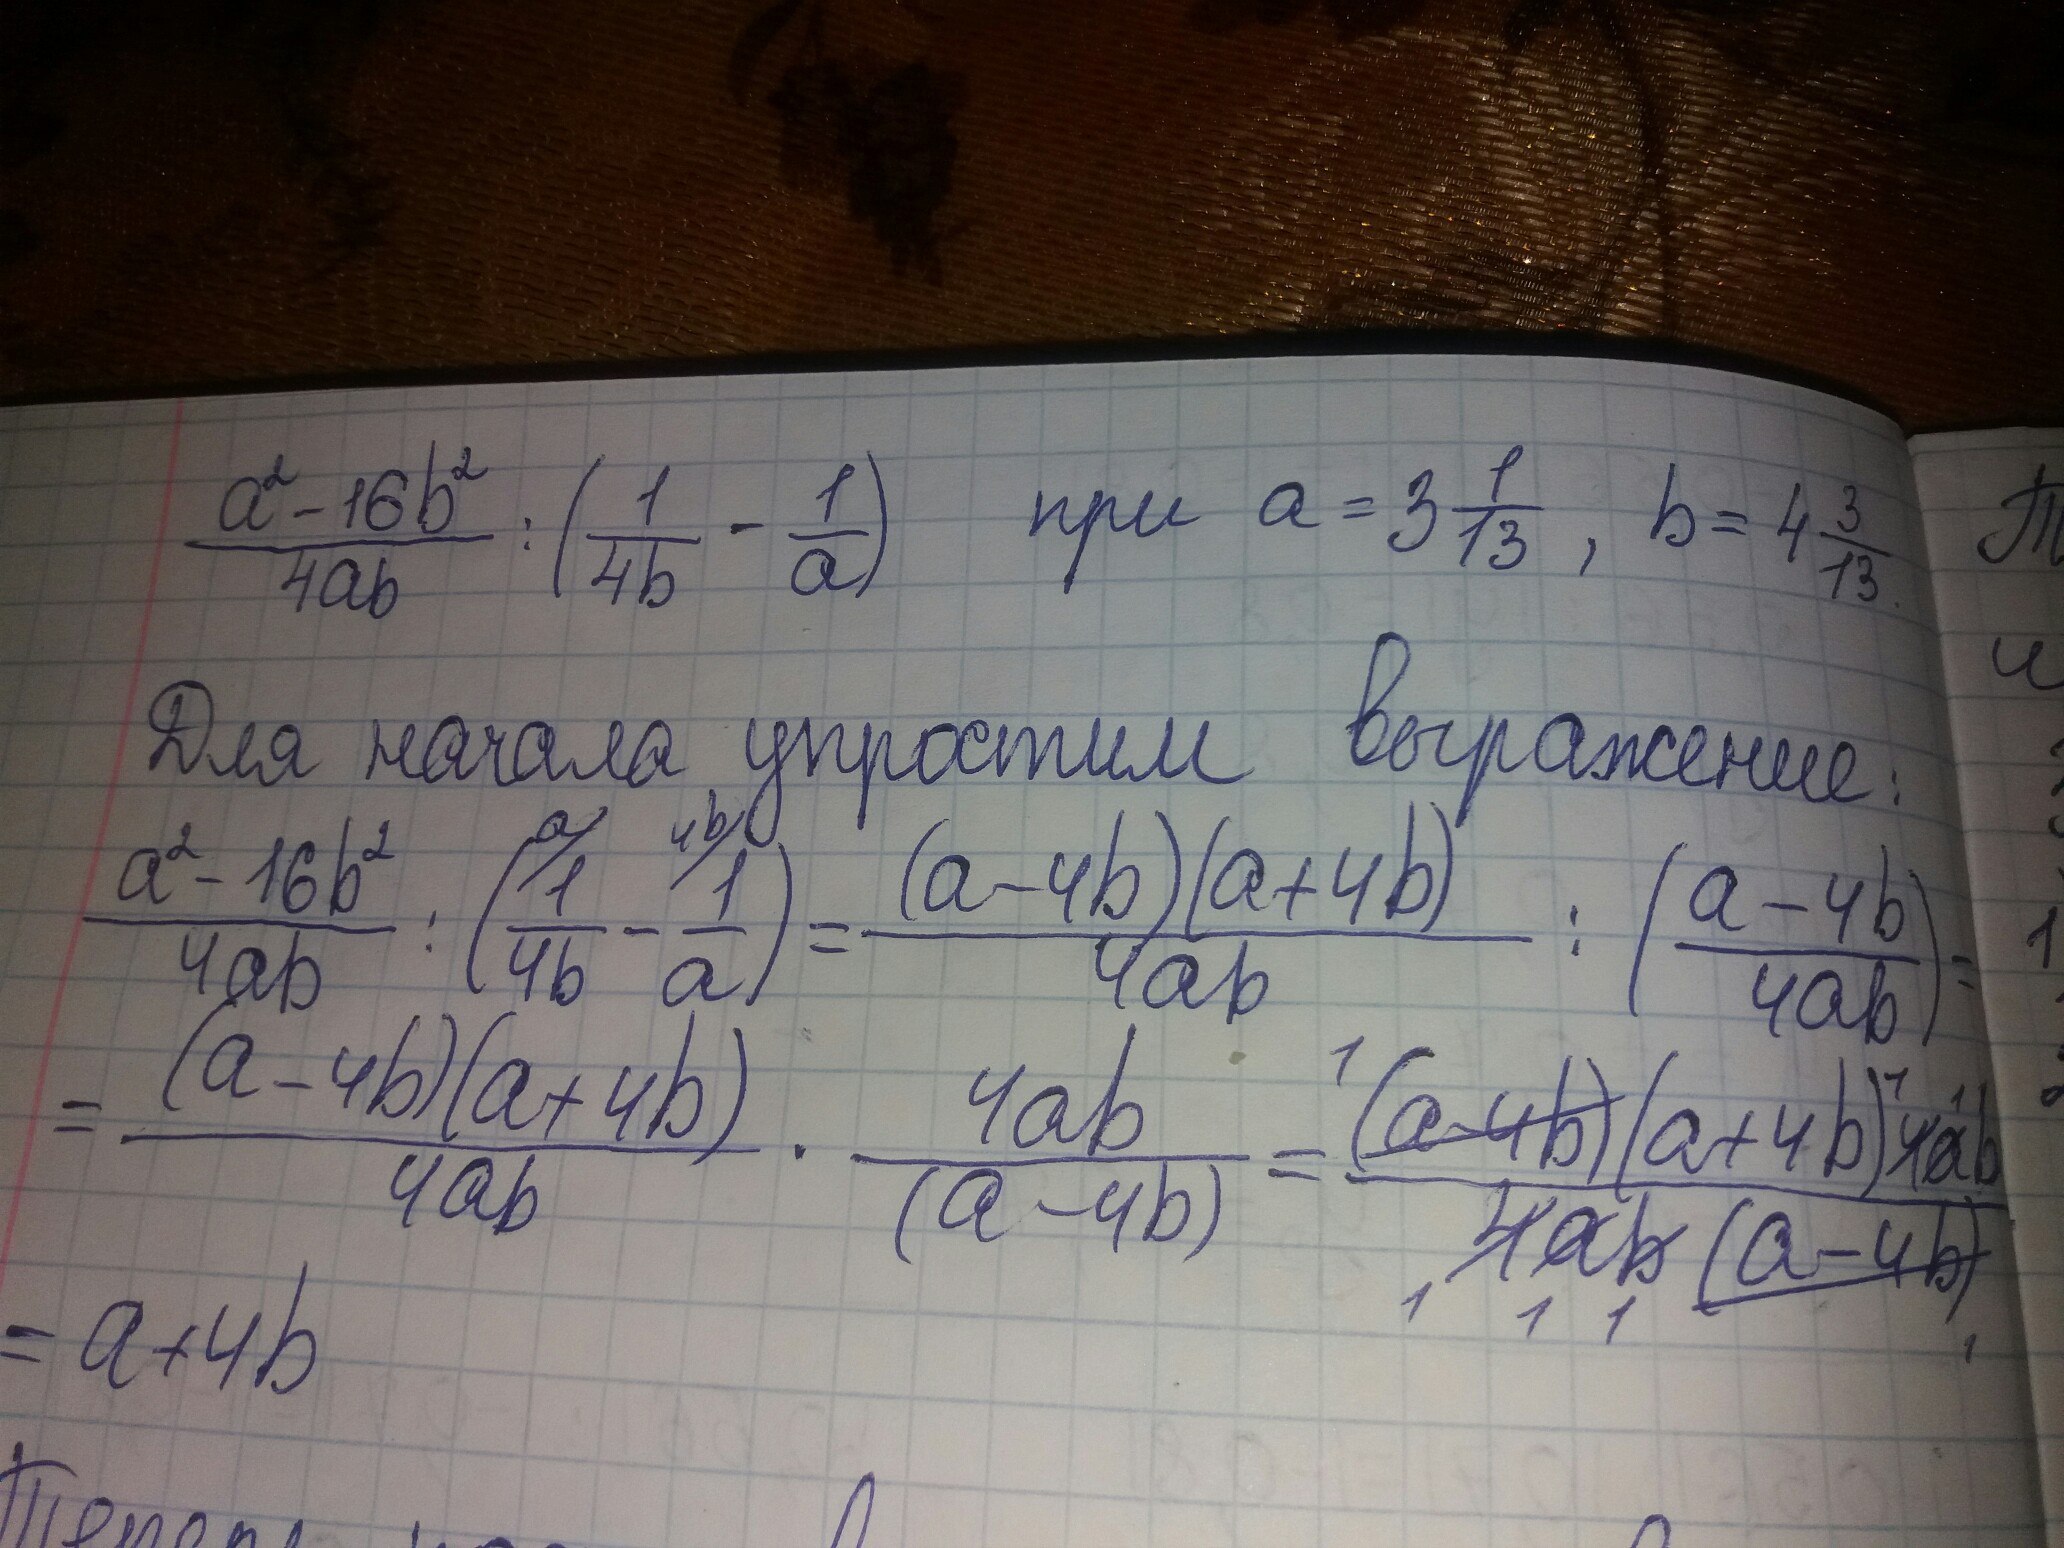 (a² - 16b²)/(4ab) : (1/(4b) - 1/a) при a = 3 1/13, b = 4 3/13.
Для начала упростим выражение:
(a² - 16b²)/(4ab) : (1/(4b) - 1/a) = ((a - 4b)(a + 4b))/(4ab) : ((a - 4b)/(4ab)) =
= ((a - 4b)(a + 4b))/(4ab) · (4ab)/((a - 4b)) = ((a - 4b)(a + 4b) 4ab)/(4ab (a - 4b))
= a + 4b